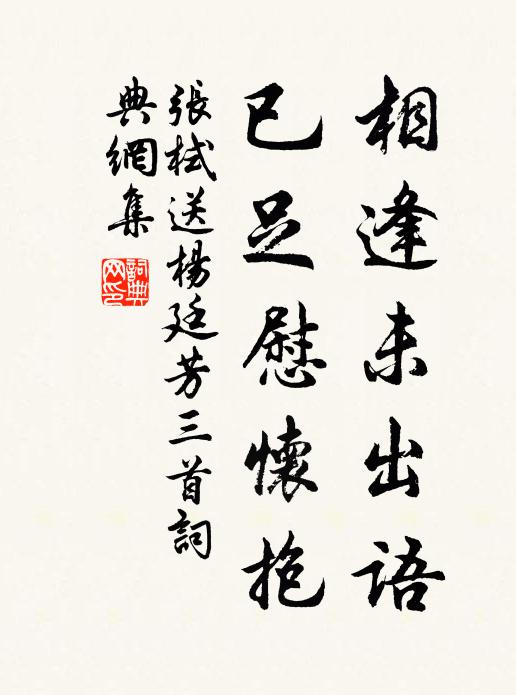 相逢未出語
已足慰懷抱
張栻送楊廷芳三首詞
典網集
詞典网印